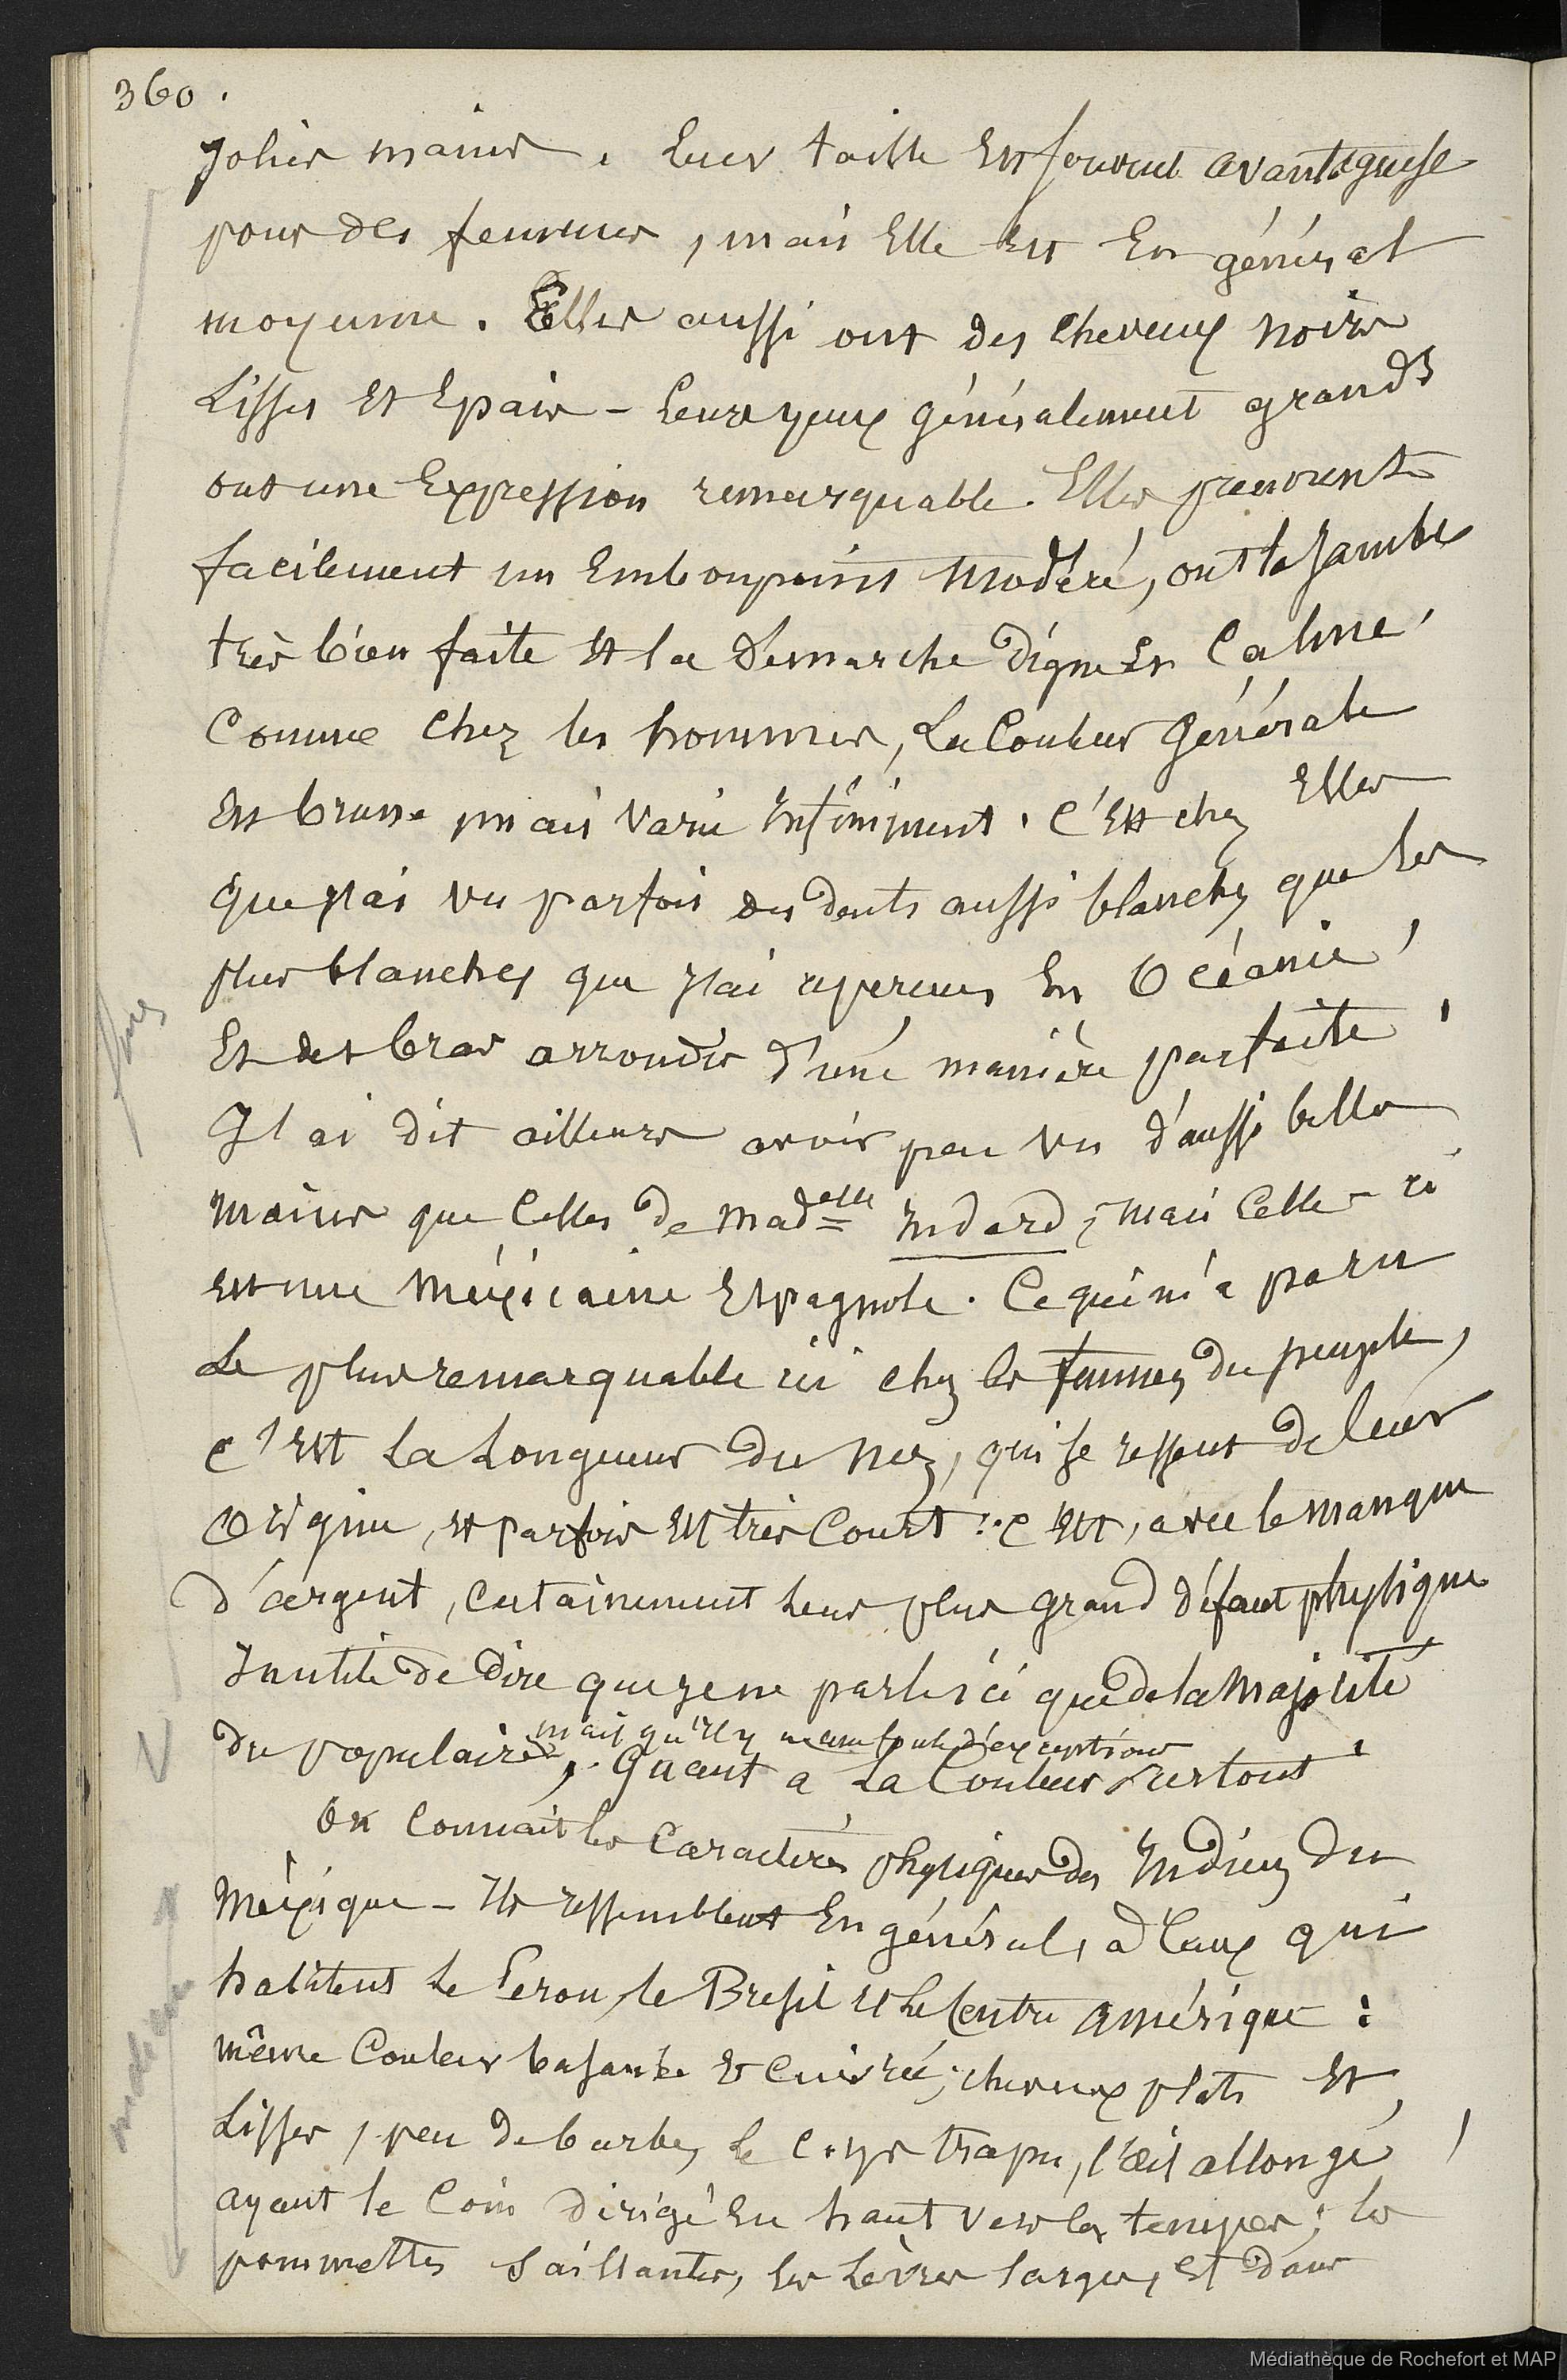 360.
jolies mains. Leur taille est souvent avantageuse
pour des femmes, mais Elle est En général
moyenne. Elles aussi ont des cheveux noirs
Lisses et Epais - Leurs yeux généralement grands
ont une Expression remarquable. Elles prennent
facilement un Embonpoint modéré, ont la jambe
très bien faite et la démarche digne et Calme,
Comme chez les hommes, La Couleur Générale
est brune mais varie infiniment. C'est chez Elles
que j'ai vu parfois des dents aussi blanches que les
plus blanches que j'ai aperçues En Océanie,
Et des bras arrondis d'une manière parfaite,
J'ai dit ailleurs avoir peu vu d'aussi belles
mains que Celles de Madelle Indard, mais Celle-ci
est une Méxicaine Espagnole. Ce qui m'a paru
Le plus remarquable ici chez les femmes du peuple,
c'est La Longueur du nez, qui se ressent de leur
Origine, et parfois est très Court : c'est, avec le manque
d'argent, certainement leur plus grand défaut physique
Inutile de dire que je ne parle ici que de la majorité
du populaire, mais qu'il y a une foule d'exceptions
Quant a La Couleur surtout
On Connait les Caractères physiques des Indiens du
Méxique - Ils ressemblent En général, à Ceux qui
habitent Le Perou, le Bresil et Le Centre Amérique :
même Couleur basanée et Cuivrée, cheveux plats et
Lisses, peu de barbe, Le Corps trapu, l'œil allongé,
ayant le Coin dirigé En haut vers les tempes ; les
pommettes Saillantes, les Lèvres larges, et dans
Médiathèque de Rochefort et MAP